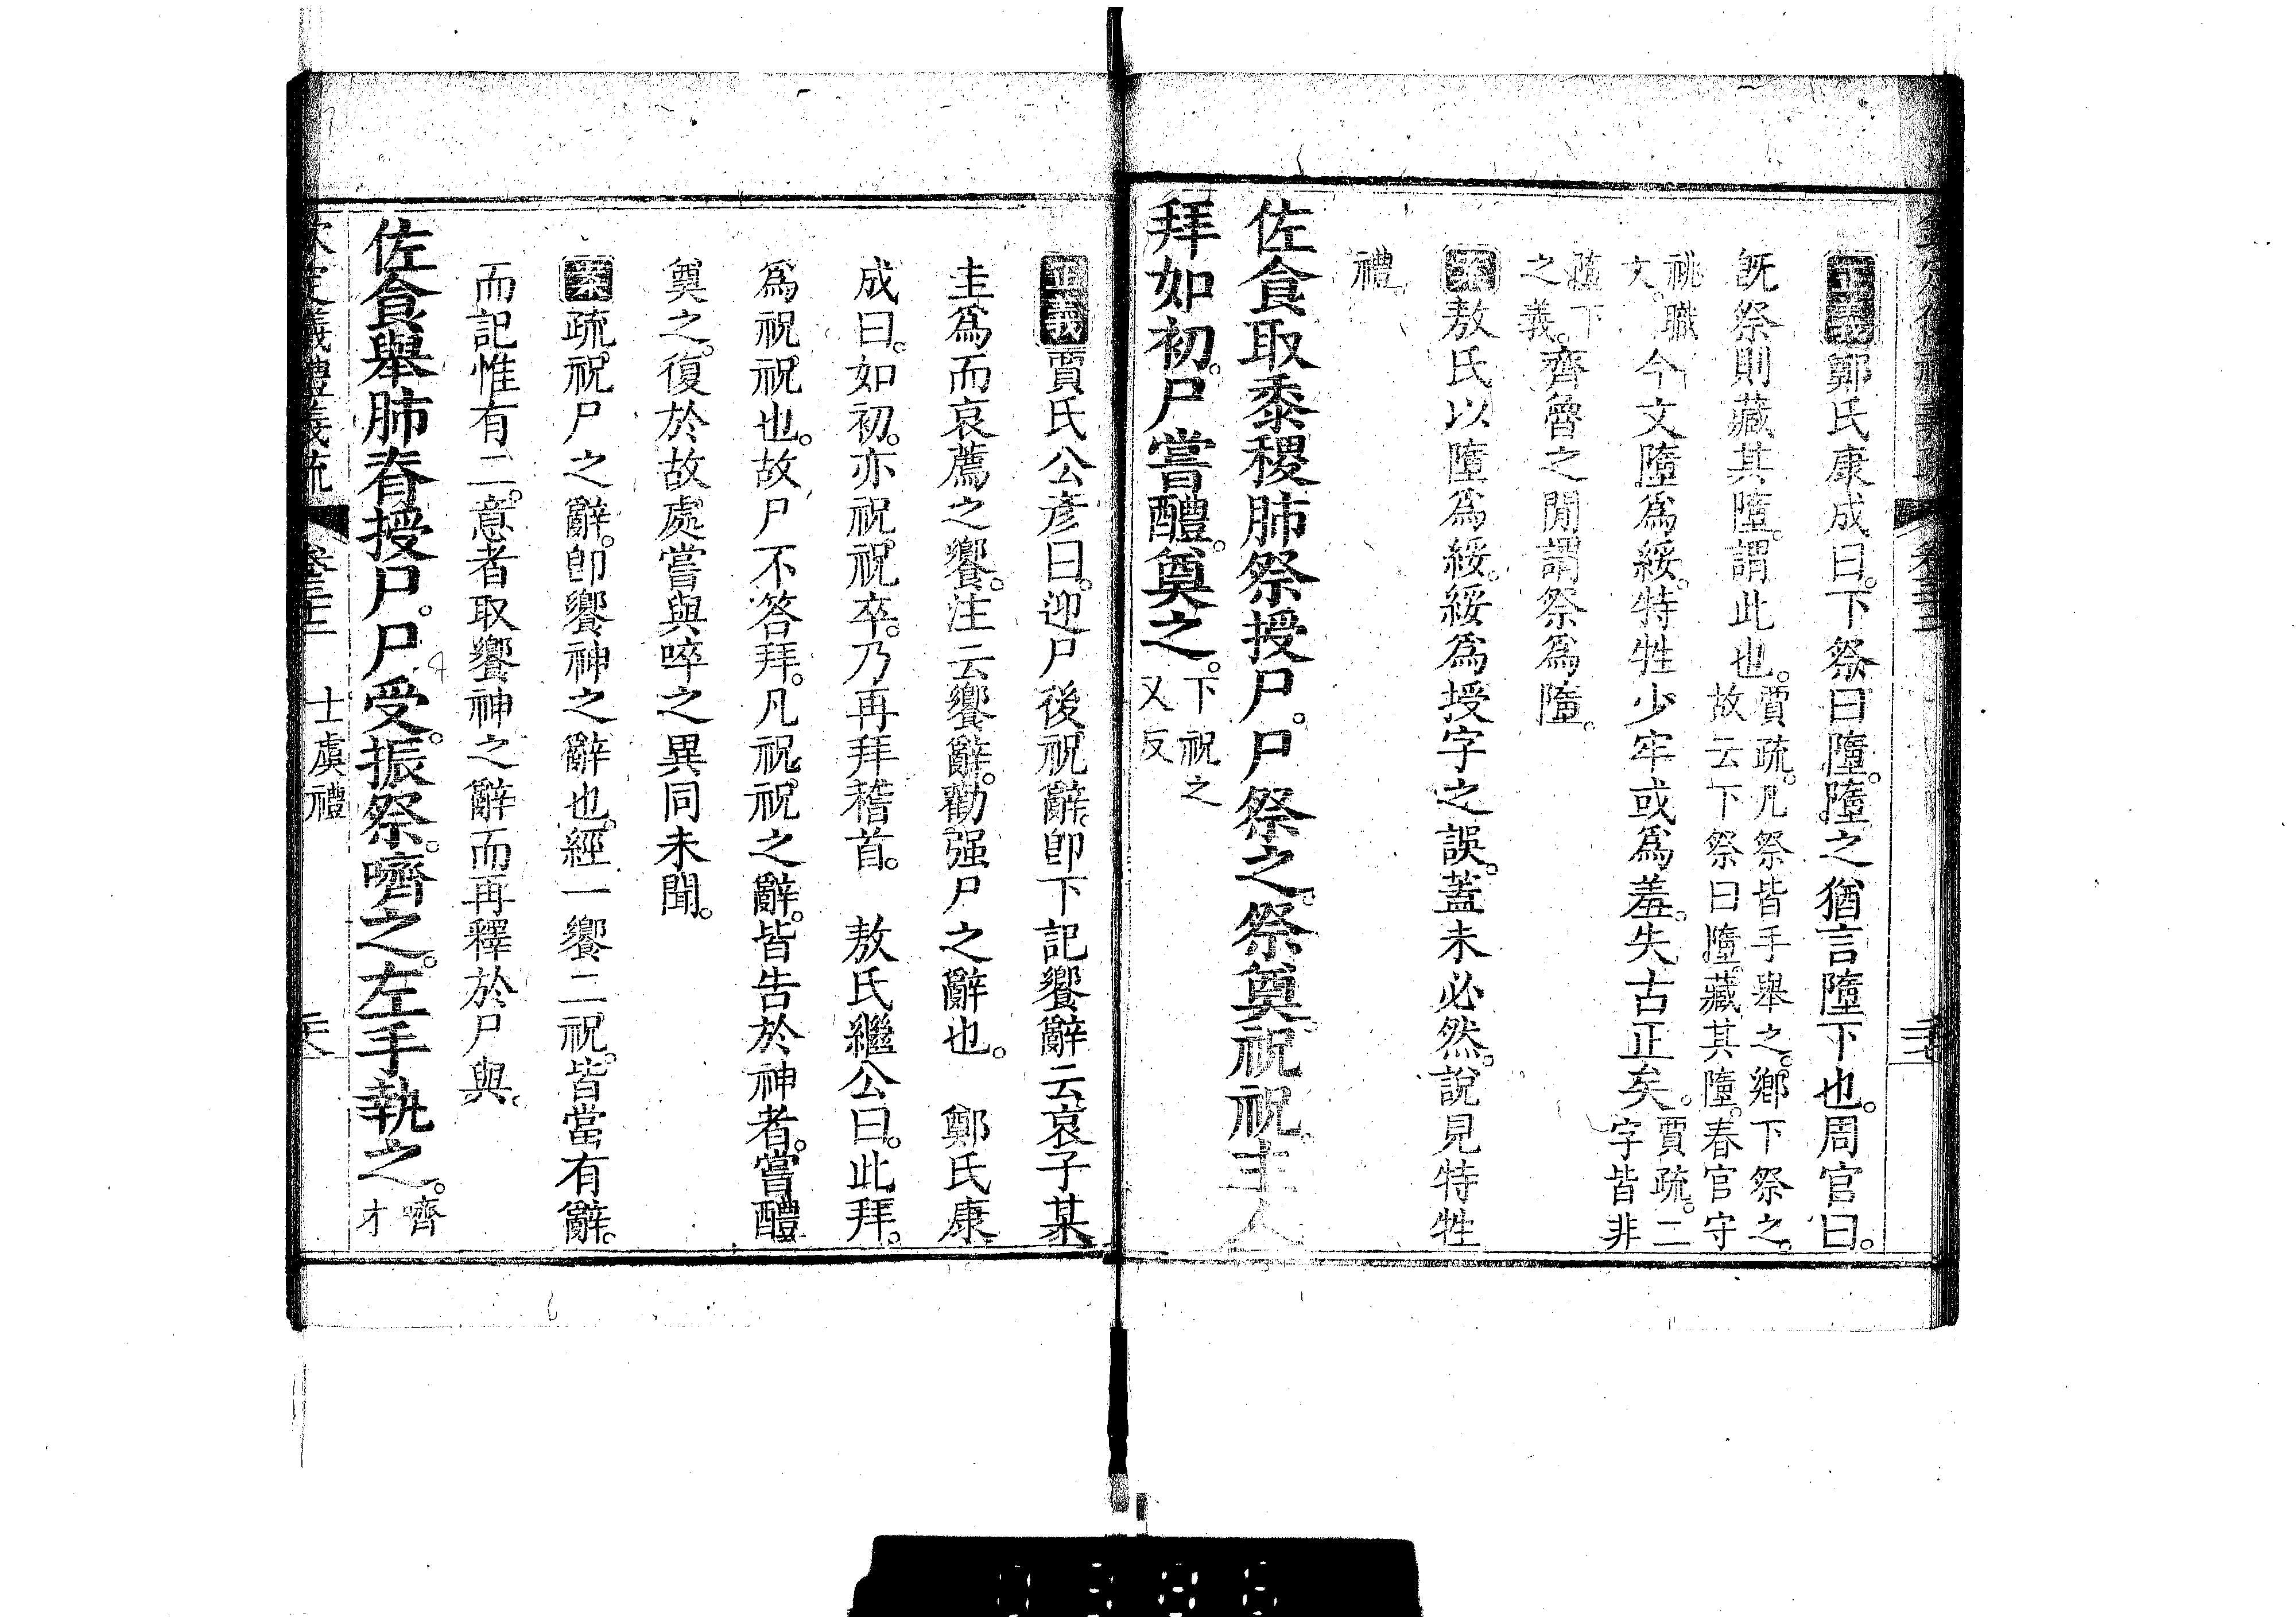 正義鄭氏康成曰。下祭曰隳。隳之猶言隳下也。周官曰。
既祭則藏其隳。謂此也。賈疏。凡祭皆手舉之。鄉下祭之。故云下祭曰隳。藏其隳。春官守
祧職文。今文隳爲綏。特牲少牢或爲羞。失古正矣。賈疏。二字皆非
隳下之義。齊魯之閒謂祭爲隳。
敖氏以隳爲綏。綏爲授字之誤。蓋未必然。說見特牲
禮。
佐食取黍稷肺祭授尸。尸祭之。祭奠。祝祝。主人
拜如初。尸嘗醴。奠之。下祝之又反
正義賈氏公彥曰。迎尸後祝辭。卽下記饗辭云哀子某
圭爲而哀薦之饗。注云饗辭。勸强尸之辭也。 鄭氏康
成曰。如初。亦祝。祝卒。乃再拜稽首。 敖氏繼公曰。此拜。
爲祝祝也。故尸不答拜。凡祝。祝之辭。皆告於神者。嘗醴
奠之。復於故處。嘗與啐之異同未聞。
案疏。祝尸之辭。卽饗神之辭也。經一饗二祝。皆當有辭。
而記惟有二。意者取饗神之辭而再釋於尸與。
佐食舉肺脊授尸。尸受。振祭。嚌之。左手執之。嚌才
欽定義禮義疏 卷三十三 士虞禮